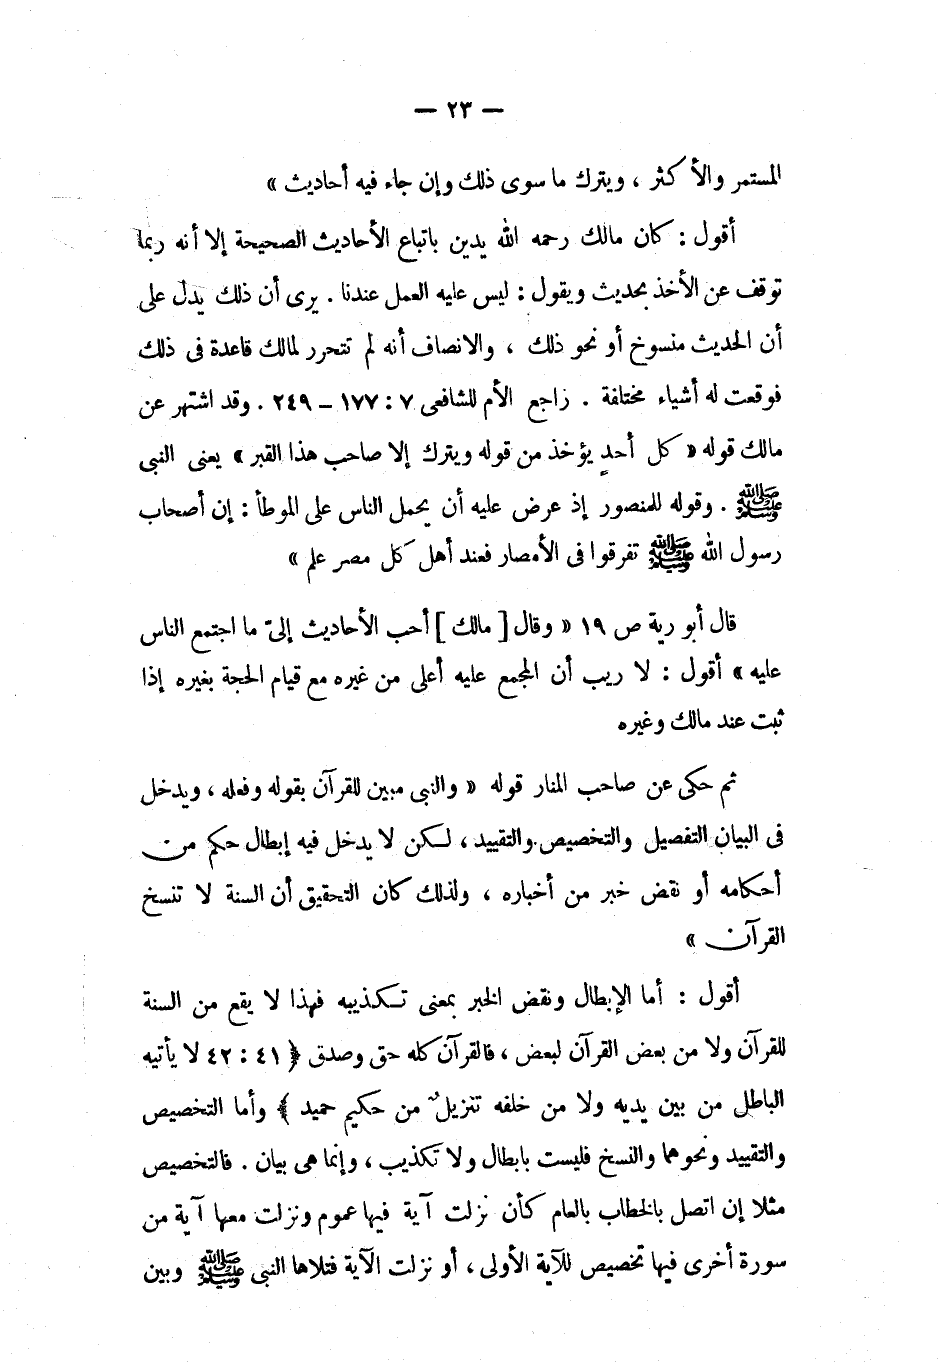 — ٢٣ —
المستمر والأكثر ، ويترك ما سوى ذلك وإن جاء فيه أحاديث »
أقول : كان مالك رحمه الله يدين باتباع الأحاديث الصحيحة إلا أنه ربما
توقف عن الأخذ بحديث ويقول : ليس عليه العمل عندنا . يرى أن ذلك يدل على
أن الحديث منسوخ أو نحو ذلك ، والانصاف أنه لم تتحرر لمالك قاعدة فى ذلك
فوقعت له أشياء مختلفة . راجع الأم للشافعى ٧ : ١٧٧ – ٢٤٩ . وقد اشتهر عن
مالك قوله « كل أحدٍ يؤخذ من قوله ويترك إلا صاحب هذا القبر » يعنى النبى
ﷺ . وقوله للمنصور إذ عرض عليه أن يحمل الناس على الموطأ : إن أصحاب
رسول الله ﷺ تفرقوا فى الأمصار فعند أهل كل مصر علم »
قال أبو رية ص ١٩ « وقال [ مالك ] أحب الأحاديث إلىّ ما اجتمع الناس
عليه » أقول : لا ريب أن المجمع عليه أعلى من غيره مع قيام الحجة بغيره إذا
ثبت عند مالك وغيره
ثم حكى عن صاحب المنار قوله « والنبى مبين للقرآن بقوله وفعله ، ويدخل
فى البيان التفصيل والتخصيص والتقييد ، لكن لا يدخل فيه إبطال حكم من
أحكامه أو نقض خبر من أخباره ، ولذلك كان التحقيق أن السنة لا تنسخ
القرآن »
أقول : أما الإبطال ونقض الخبر بمعنى تكذيبه فهذا لا يقع من السنة
للقرآن ولا من بعض القرآن لبعض ، فالقرآن كله حق وصدق ﴿ ٤١ : ٤٢ لا يأتيه
الباطل من بين يديه ولا من خلفه تنزيلٌ من حكيم حميد ﴾ وأما التخصيص
والتقييد ونحوهما والنسخ فليست بابطال ولا تكذيب ، وإنما هى بيان . فالتخصيص
مثلا إن اتصل بالخطاب بالعام كأن نزلت آية فيها عموم ونزلت معها آية من
سورة أخرى فيها تخصيص للآية الأولى ، أو نزلت الآية فتلاها النبى ﷺ وبين